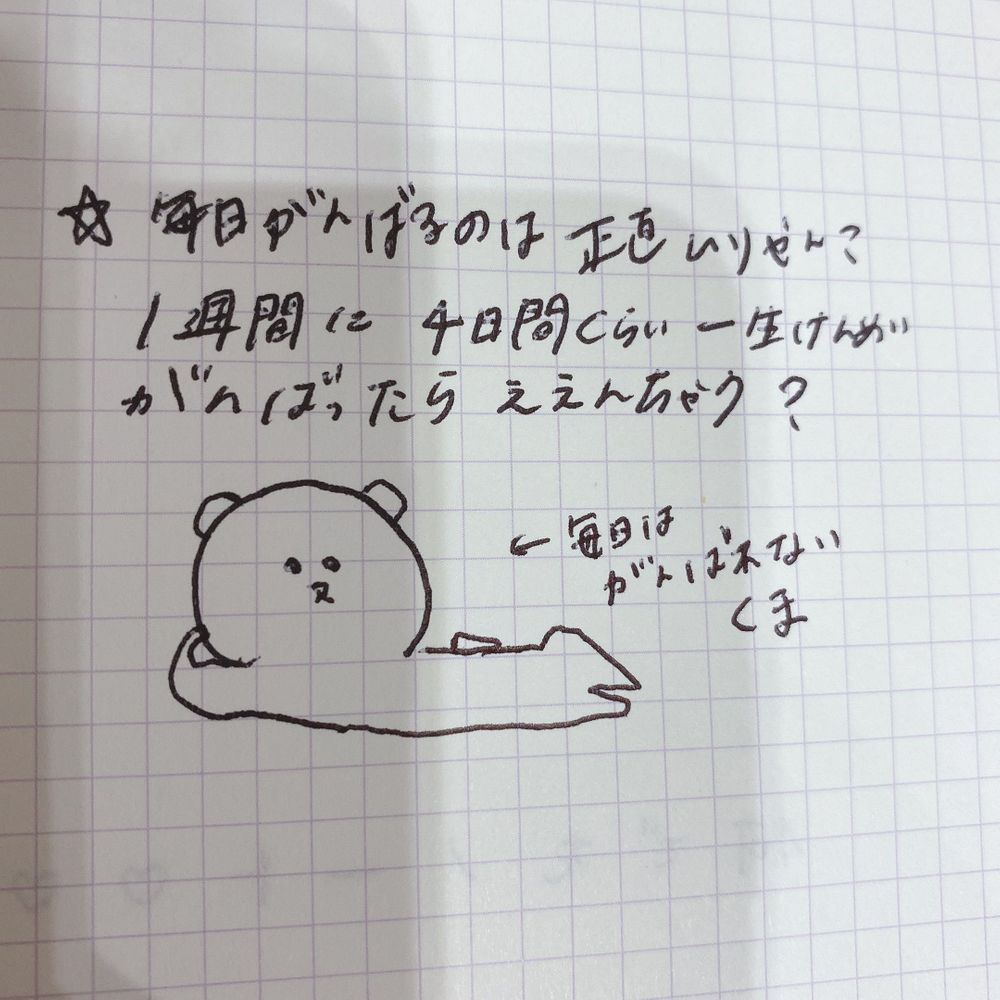 ☆ 毎日がんばるのは 正直 ムリやん?
1週間に 4日間くらい一生けんめい
がんばったら ええんちゃう?
← 毎日は
がんばれない
くま